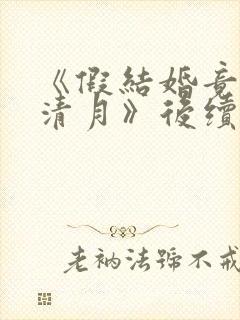 《假結婚竟
清月》後續
老衲法號不戒